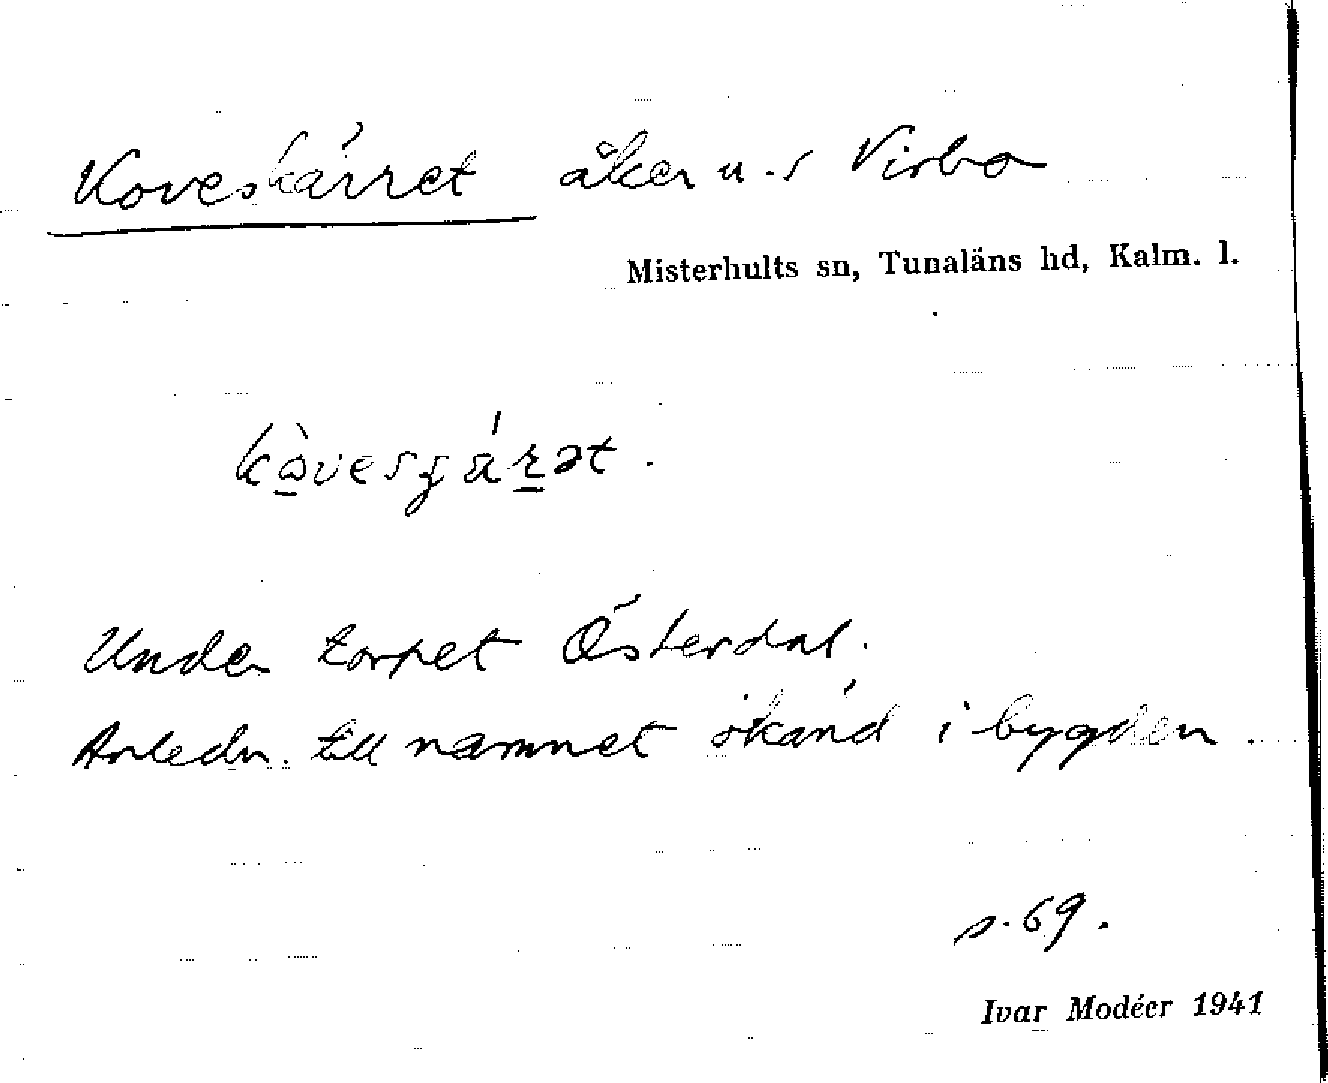 Koveskärret åker u. r Virbo
Misterhults sn, Tunaläns hd, Kalm. l.
Under torpet Österdal.
Anledn. till namnet okänd i bygden.
s. 69.
Ivar Modéer 1941